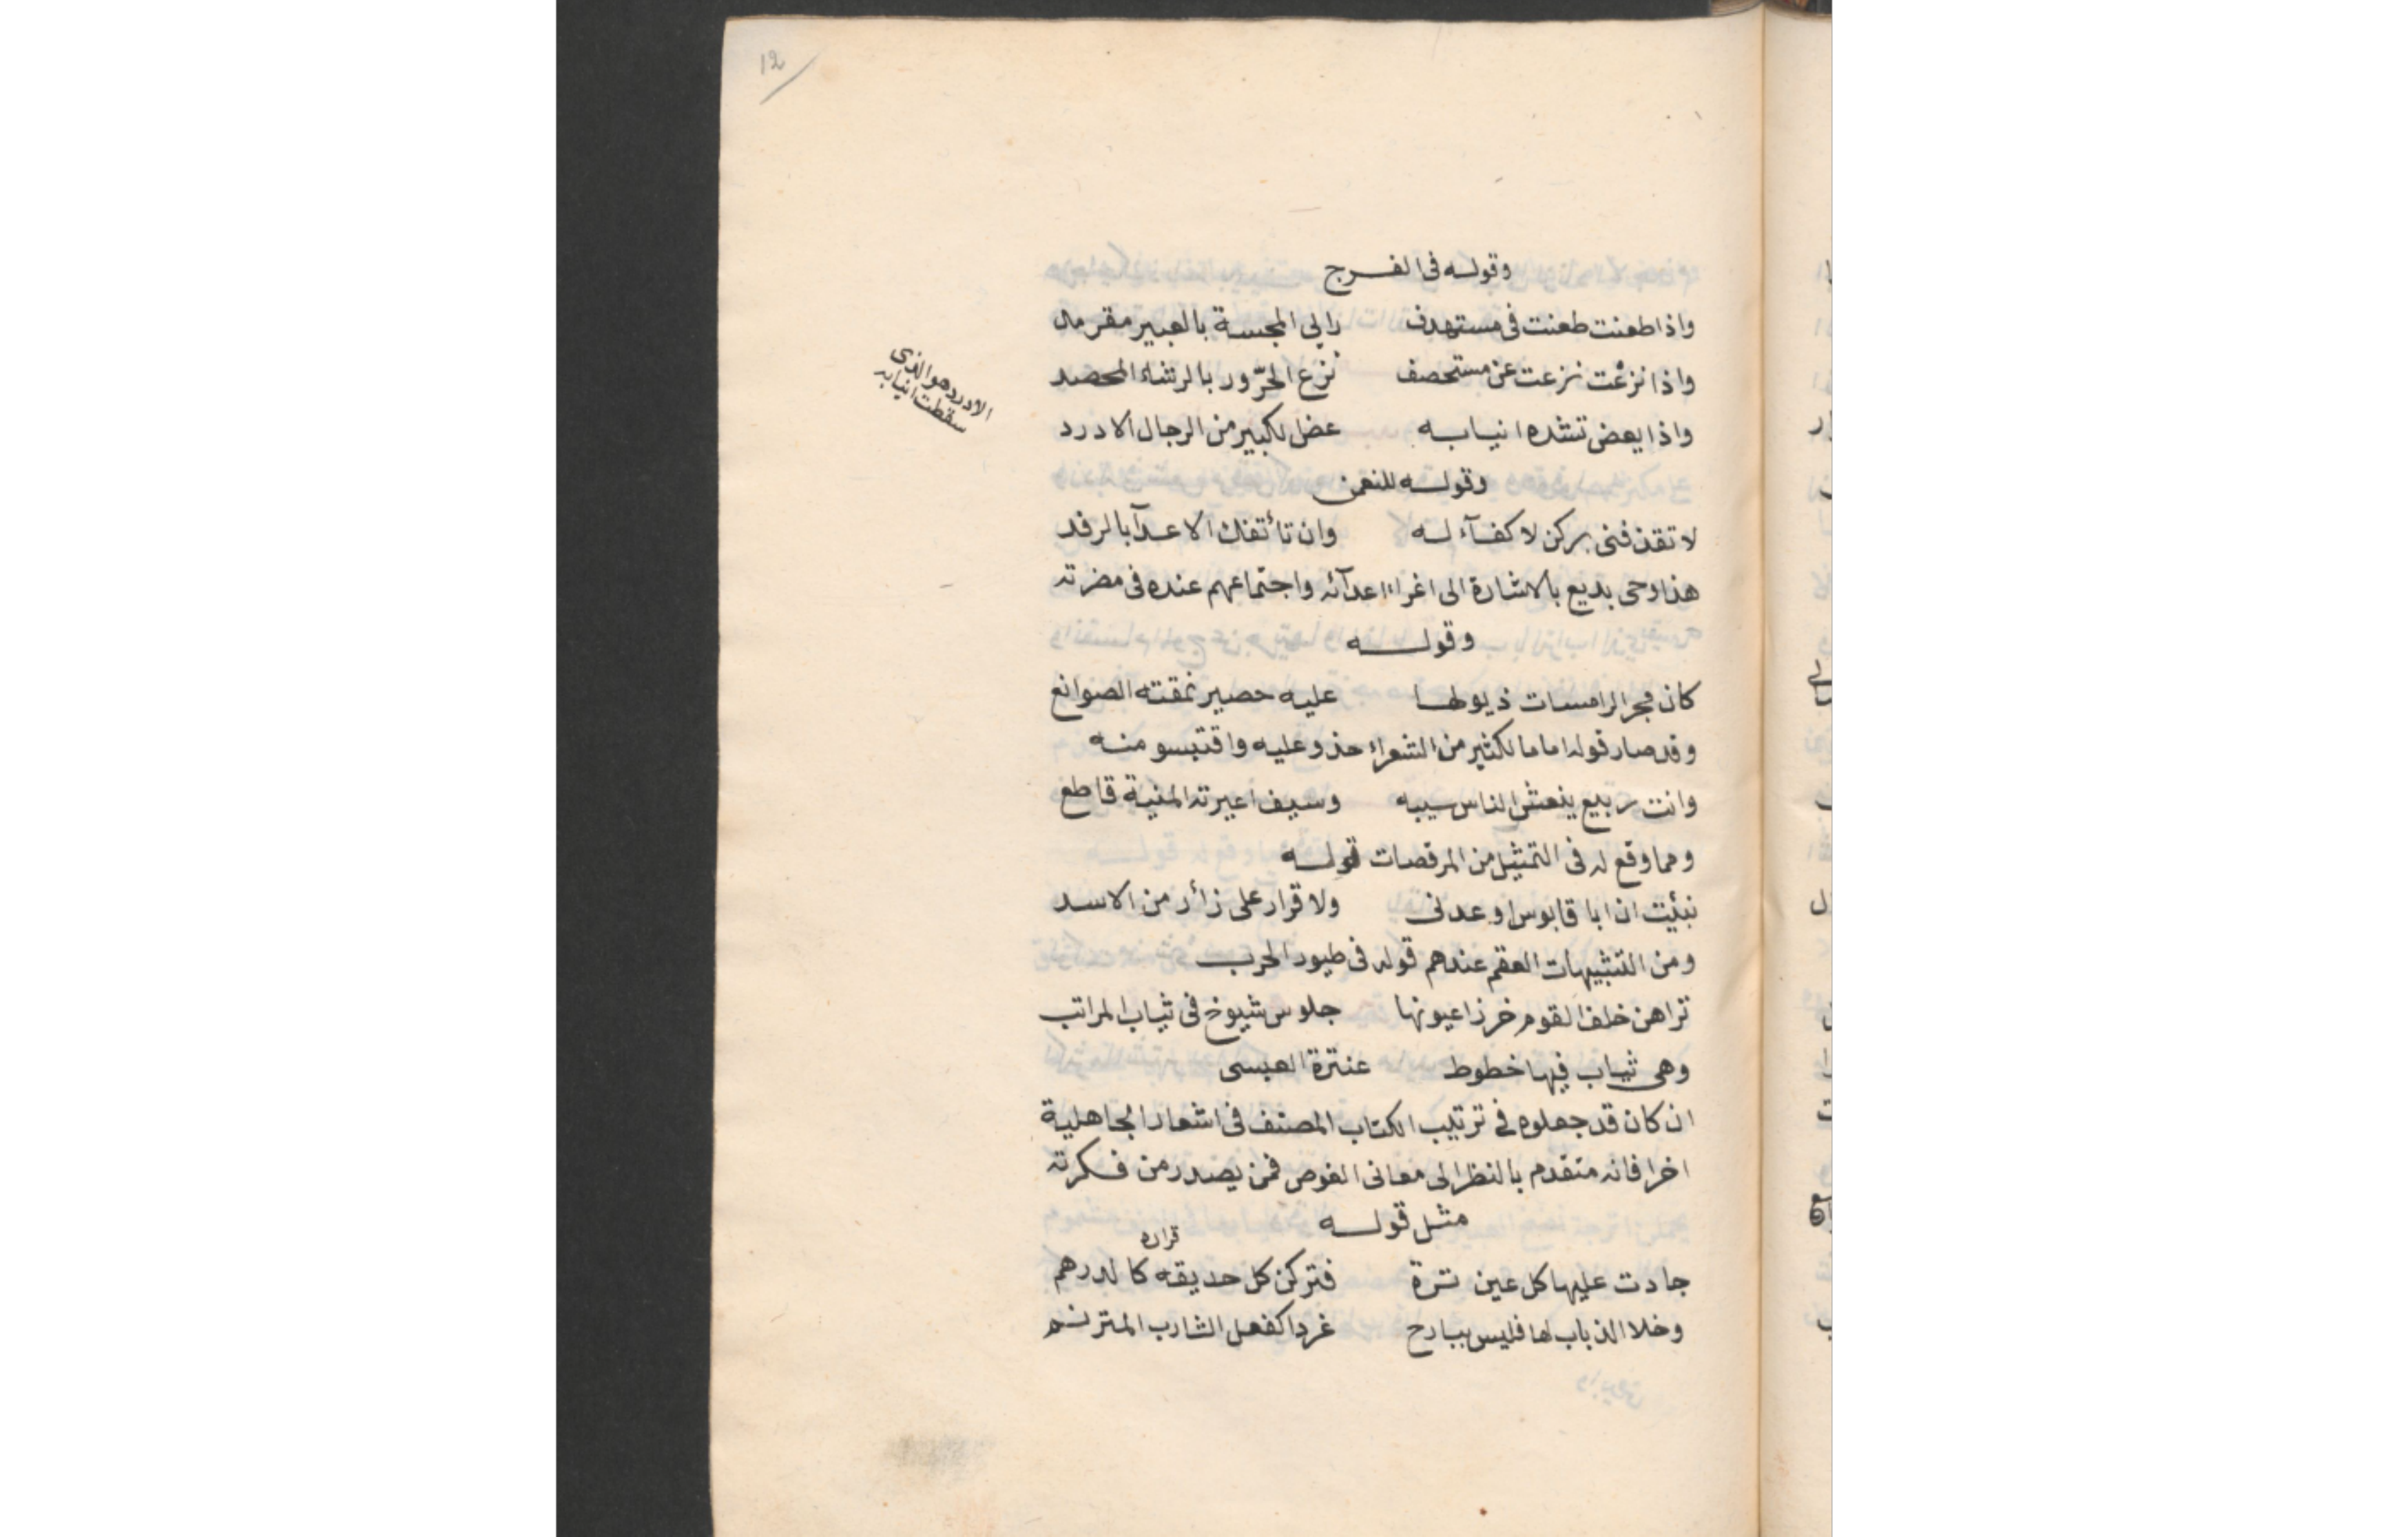 12
وقوله فى الفرج
واذا طعنت طعنت فى مستهدف رابى المجسة بالعبير مقرمد
واذا نزعت نزعت عن مستحصف نزع الحزّور بالرشاء المحصد
واذا يعض تشده انيابه عض الكبير من الرجال الادرد
الادرد هو الذى
سقطت انيابه
وقوله للنعمن
لا تقذفنى بركن لا كفآء له وان تأثفك الاعدآ بالرفد
هذا وحى بديع بالاشارة الى اغراء اعدآئه واجتماعهم عنده فى مضرته
وقوله
كان مجر الرامسات ذيولها عليه حصير نمقته الصوانع
وقد صار قوله اماما لكثير من الشعراء حذو عليه واقتبسو منه
وانت ربيع ينعش الناس سيبه وسيف اعيرته المنية قاطع
ومما وقع له فى التمثيل من المرقصات قوله
نبئيت ان ابا قابوس اوعدنى ولا قرار على زأر من الاسد
ومن التشبيهات العقم عندهم قوله فى طيور الحرب
تراهن خلف القوم خرزا عيونها جلوس شيوخ فى ثياب المراتب
وهى ثياب فيها خطوط عنترة العبسى
ان كان قد جعلوه فى ترتيب الكتاب المصنف فى اشعار الجاهلية
اخرا فانه متقدم بالنظر الى معانى الغوص فمن يصدر من فكرته
مثل قوله
قراره
جادت عليها كل عين ثرة فتركن كل حديقه كالدرهم
وخلا الذباب لها فليس ببارح غردا كفعل الشارب المترنم